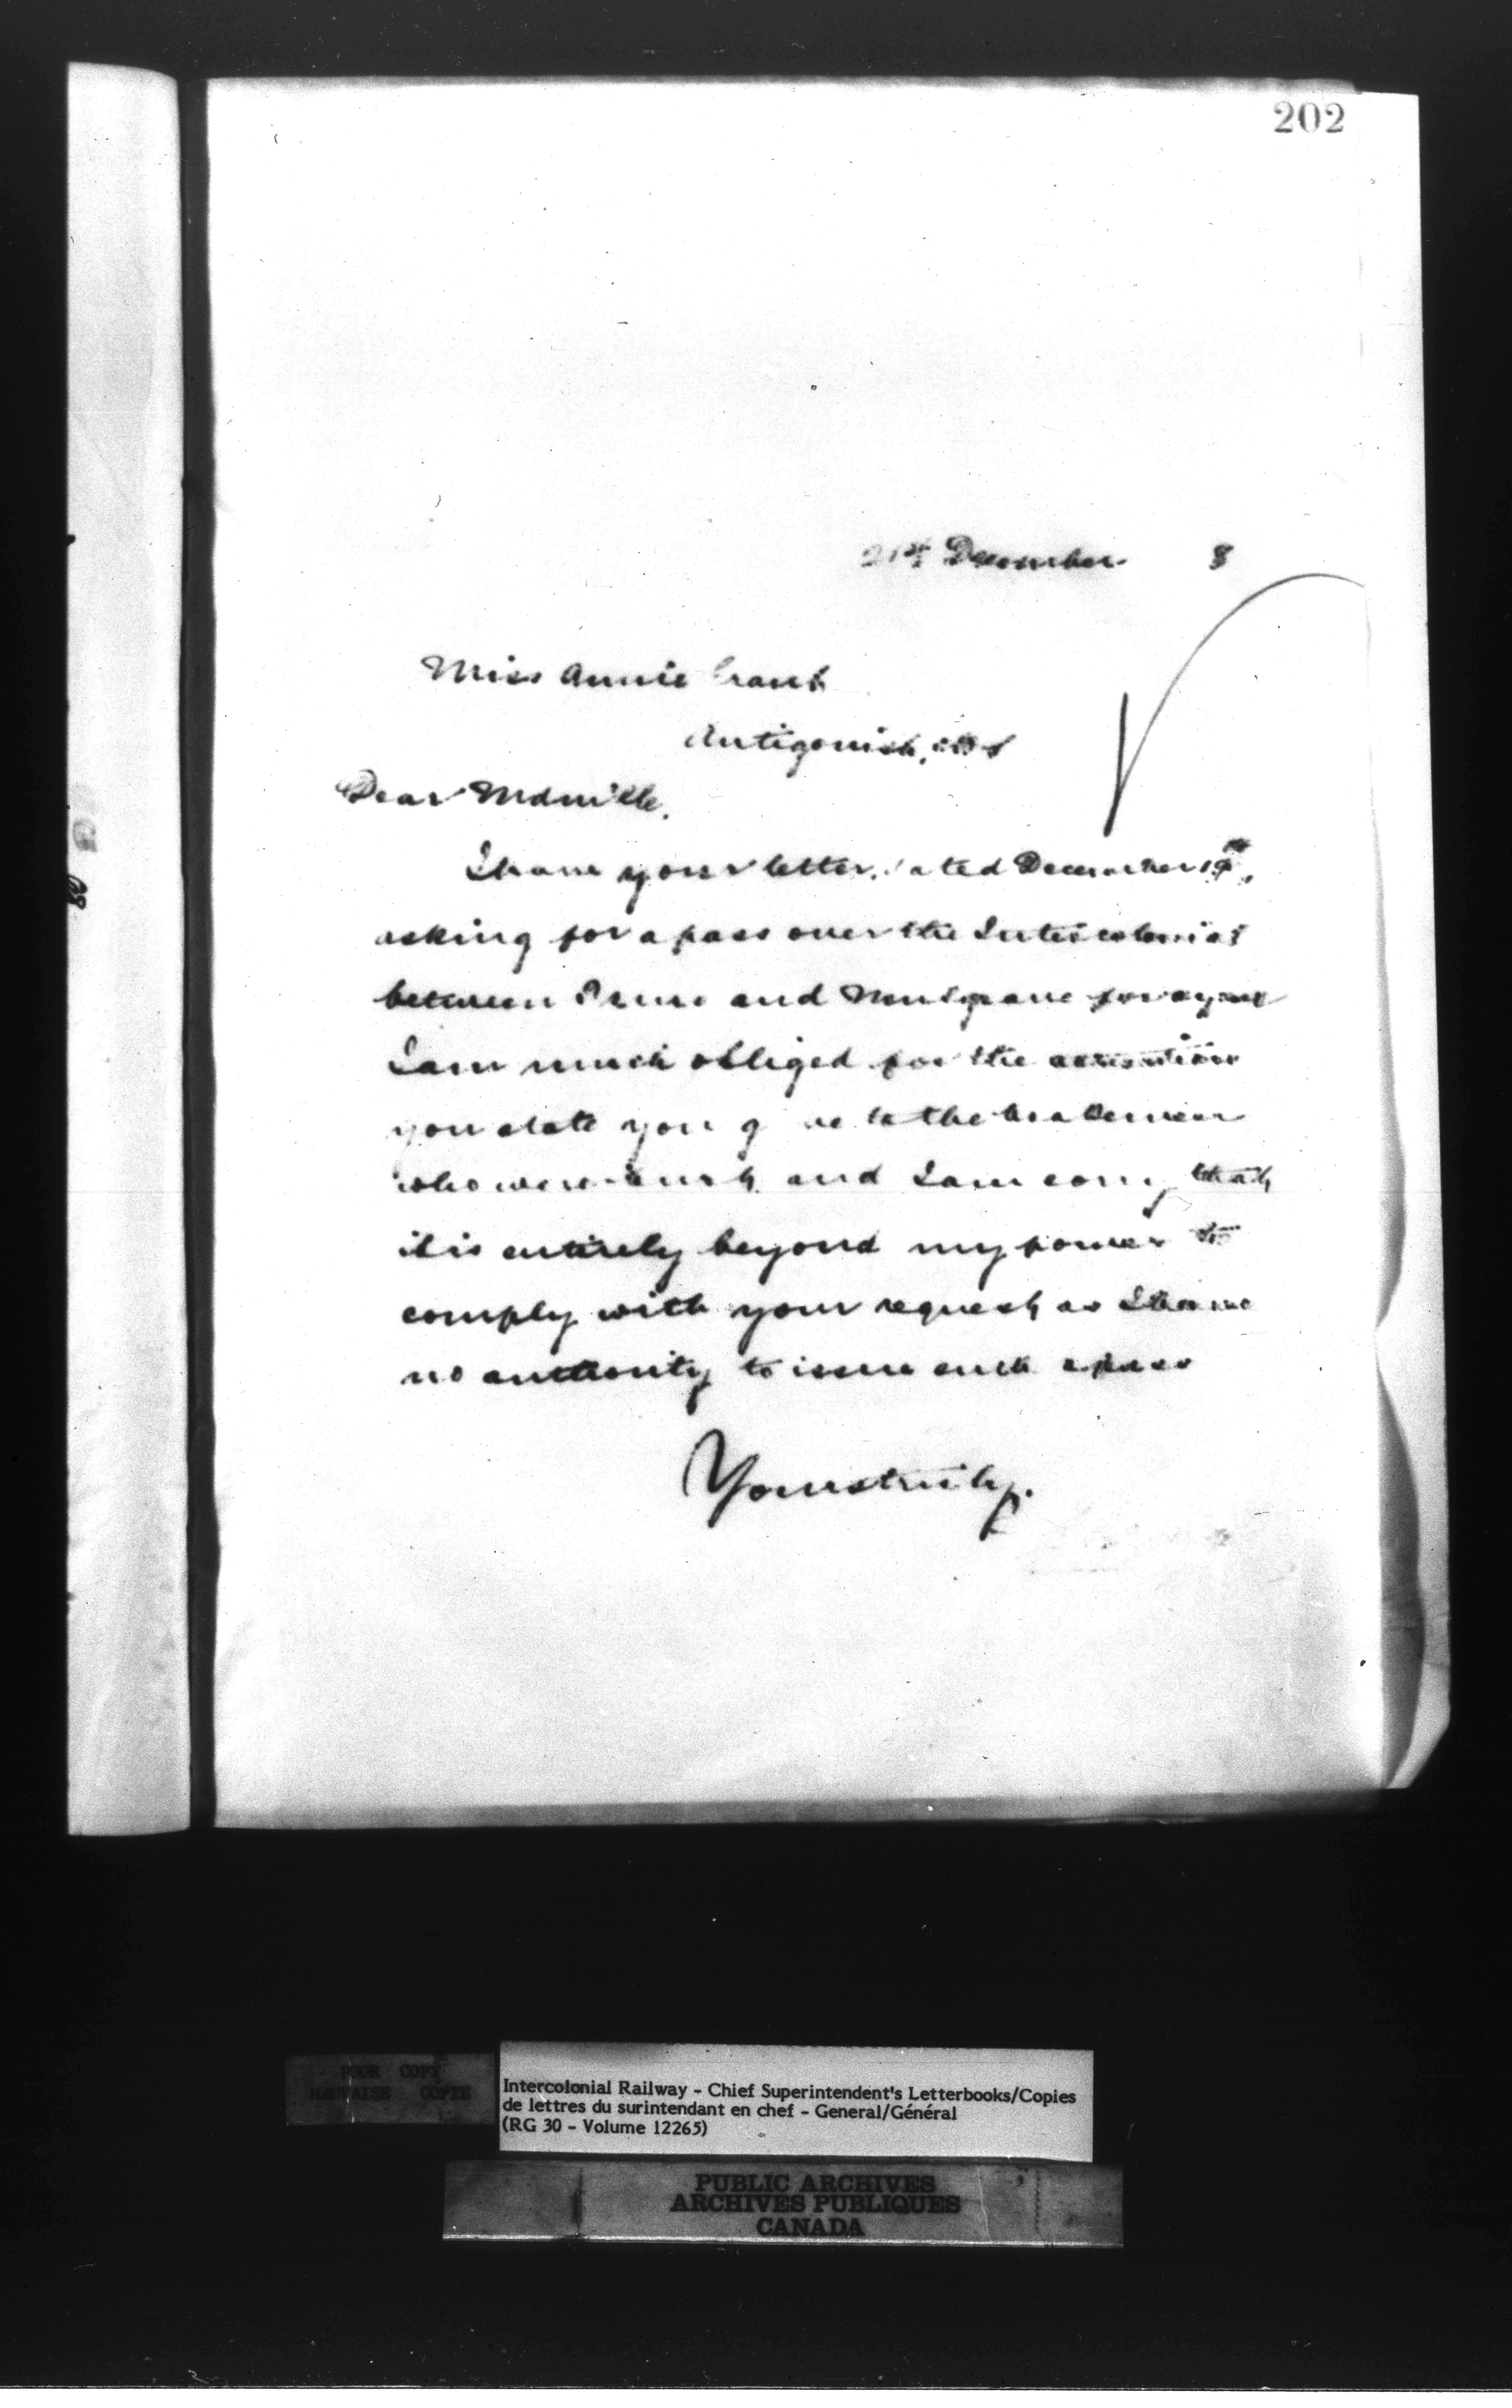 202
21st December 8
Miss Annie Grant
Antigonish, N S
Dear Mdmille.
I have your letter, dated December 19th,
asking for a pass over the Intercolonial
between and Mulgrave for a year
I am much obliged for the attention
you state you gave to the brakemen
who were hurt, and I am sorry that
it is entirely beyond my power to
comply with your request as I have
no authority to issue such a pass
Yours truly,
POOR COPY
MAUVAISE COPIE
Intercolonial Railway - Chief Superintendent's Letterbooks/Copies
de lettres du surintendant en chef - General/Général
(RG 30 - Volume 12265)
PUBLIC ARCHIVES
ARCHIVES PUBLIQUES
CANADA